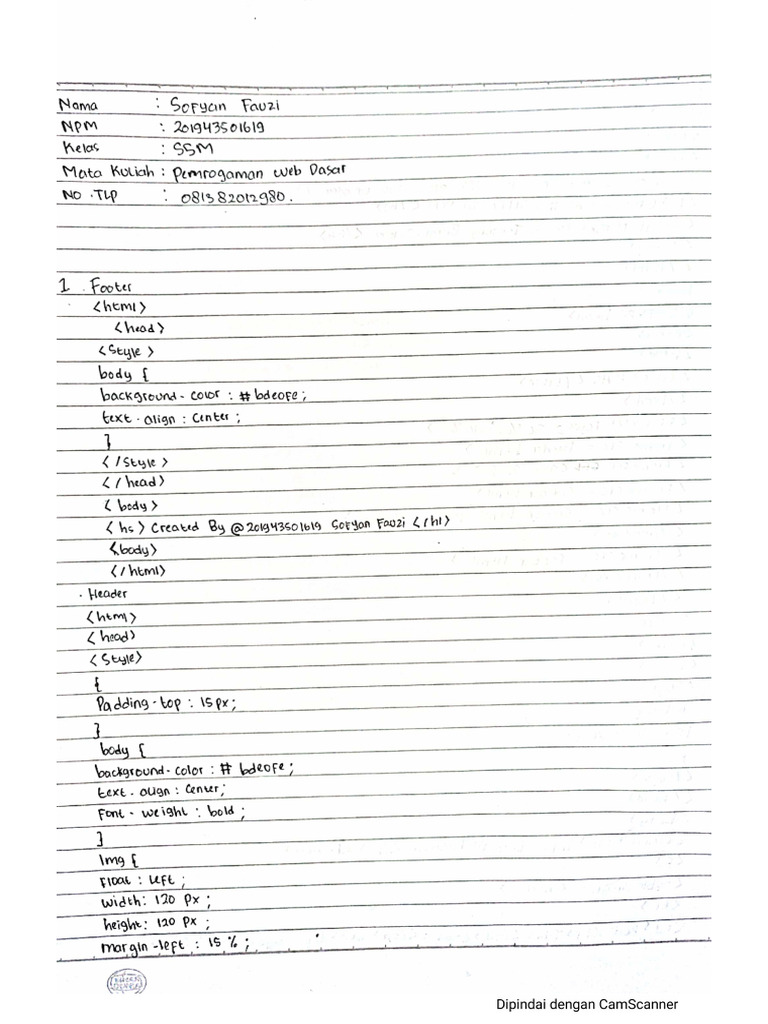 Nama : Sofyan Fauzi
NPM : 201943501619
Kelas : S5M
Mata Kuliah : Pemrogaman Web Dasar
NO .TLP : 081382012980.
1 . Footer
<html>
<head>
<Style >
body {
background - color : # bde0fe ;
text - align : Center ;
}
< /Style >
< / head>
< body >
< hs > Created By @201943501619 Sofyan Fauzi < /h1>
<body>
</html>
. Header
<html>
< head>
< Style>
{
Padding - top : 15px ;
}
body {
background - color : # bde0fe ;
text - align : Center ;
Font - weight : bold ;
}
Img {
Float : left ;
width : 120 Px ;
height : 120 px ;
margin - left : 15 % ;
Dipindai dengan CamScanner